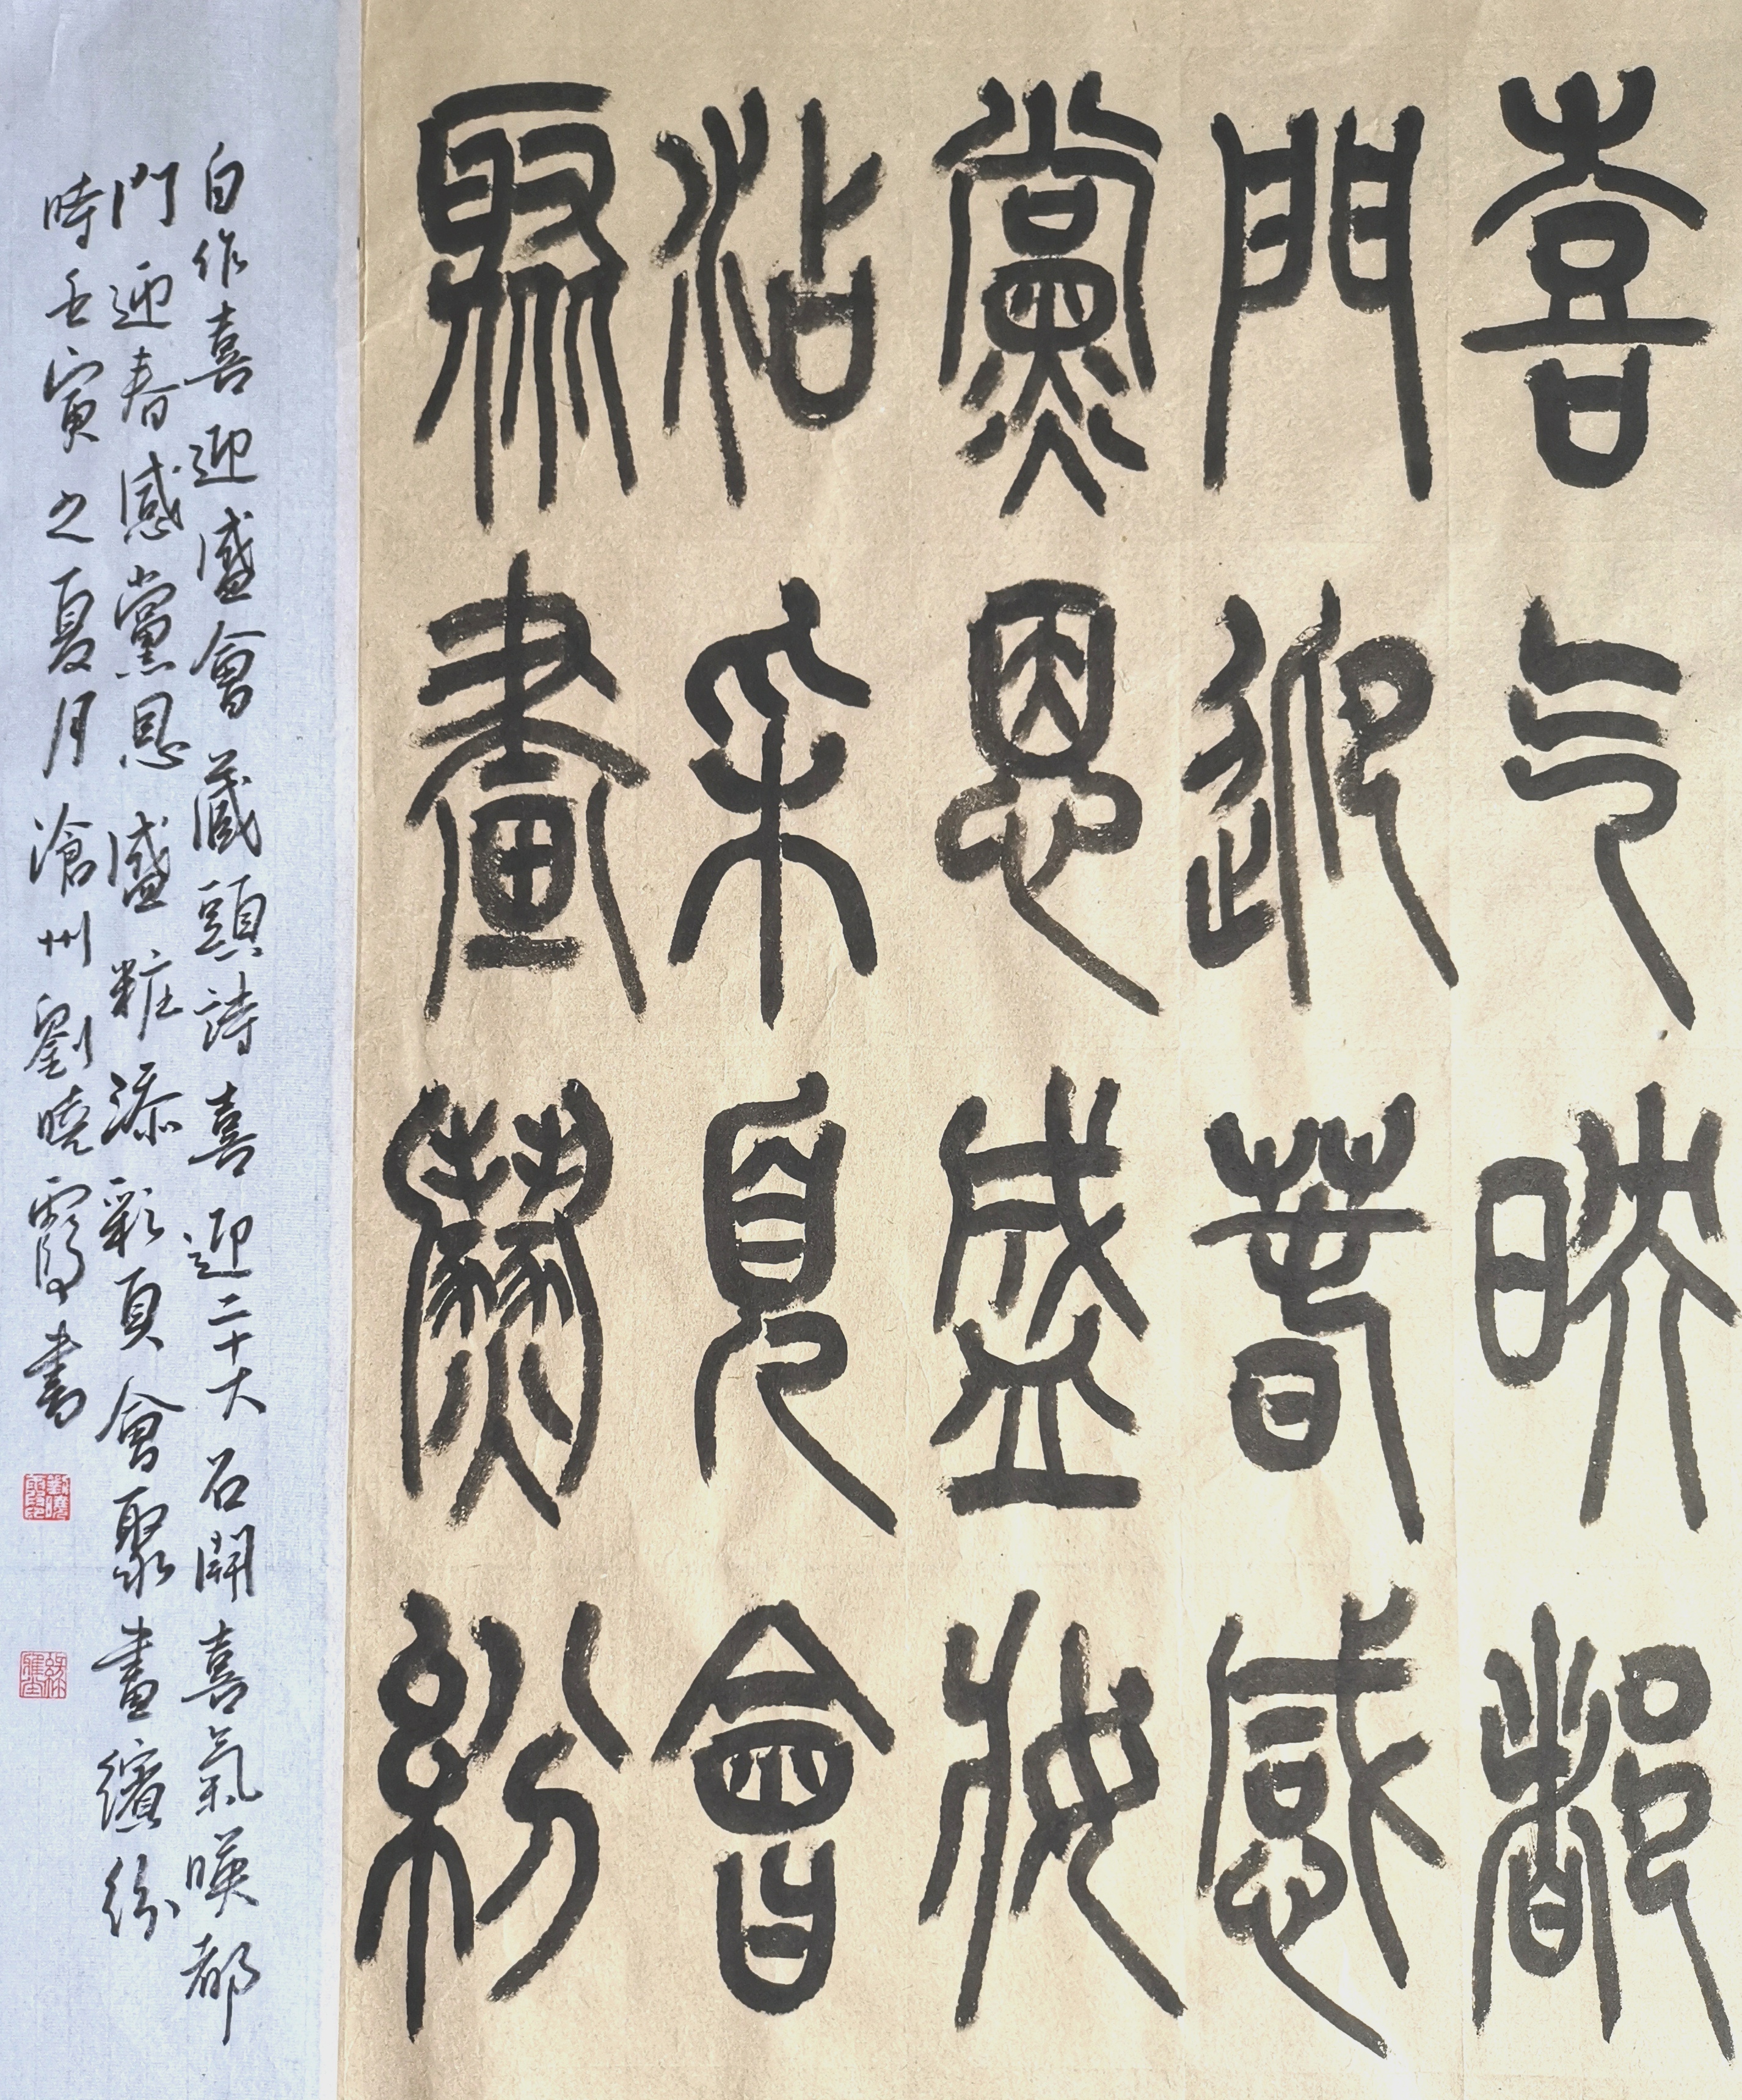 喜气映都
門迎春感
黨恩盛妝
沾采見會
聚畫繽紛
自作喜迎盛會藏頭詩喜迎二十大召開喜氣暎都
門迎春感黨恩盛粧添彩頁會聚畫繽紛
時壬寅之夏月滄州劉曉霞書
劉曉霞